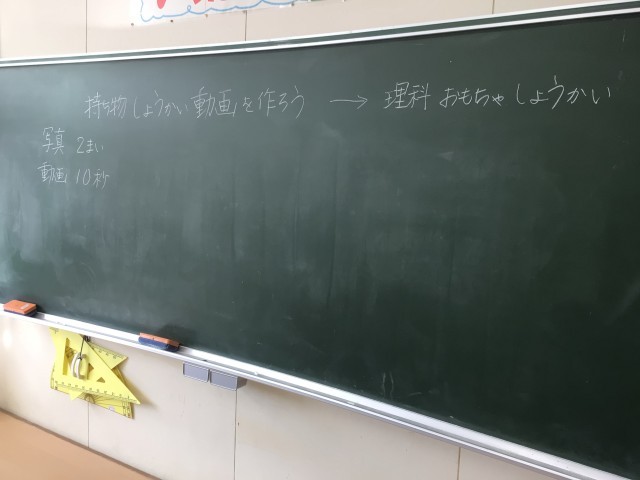 持ち物しょうかい動画を作ろう → 理科 おもちゃ しょうかい
写真 2まい
動画 10秒